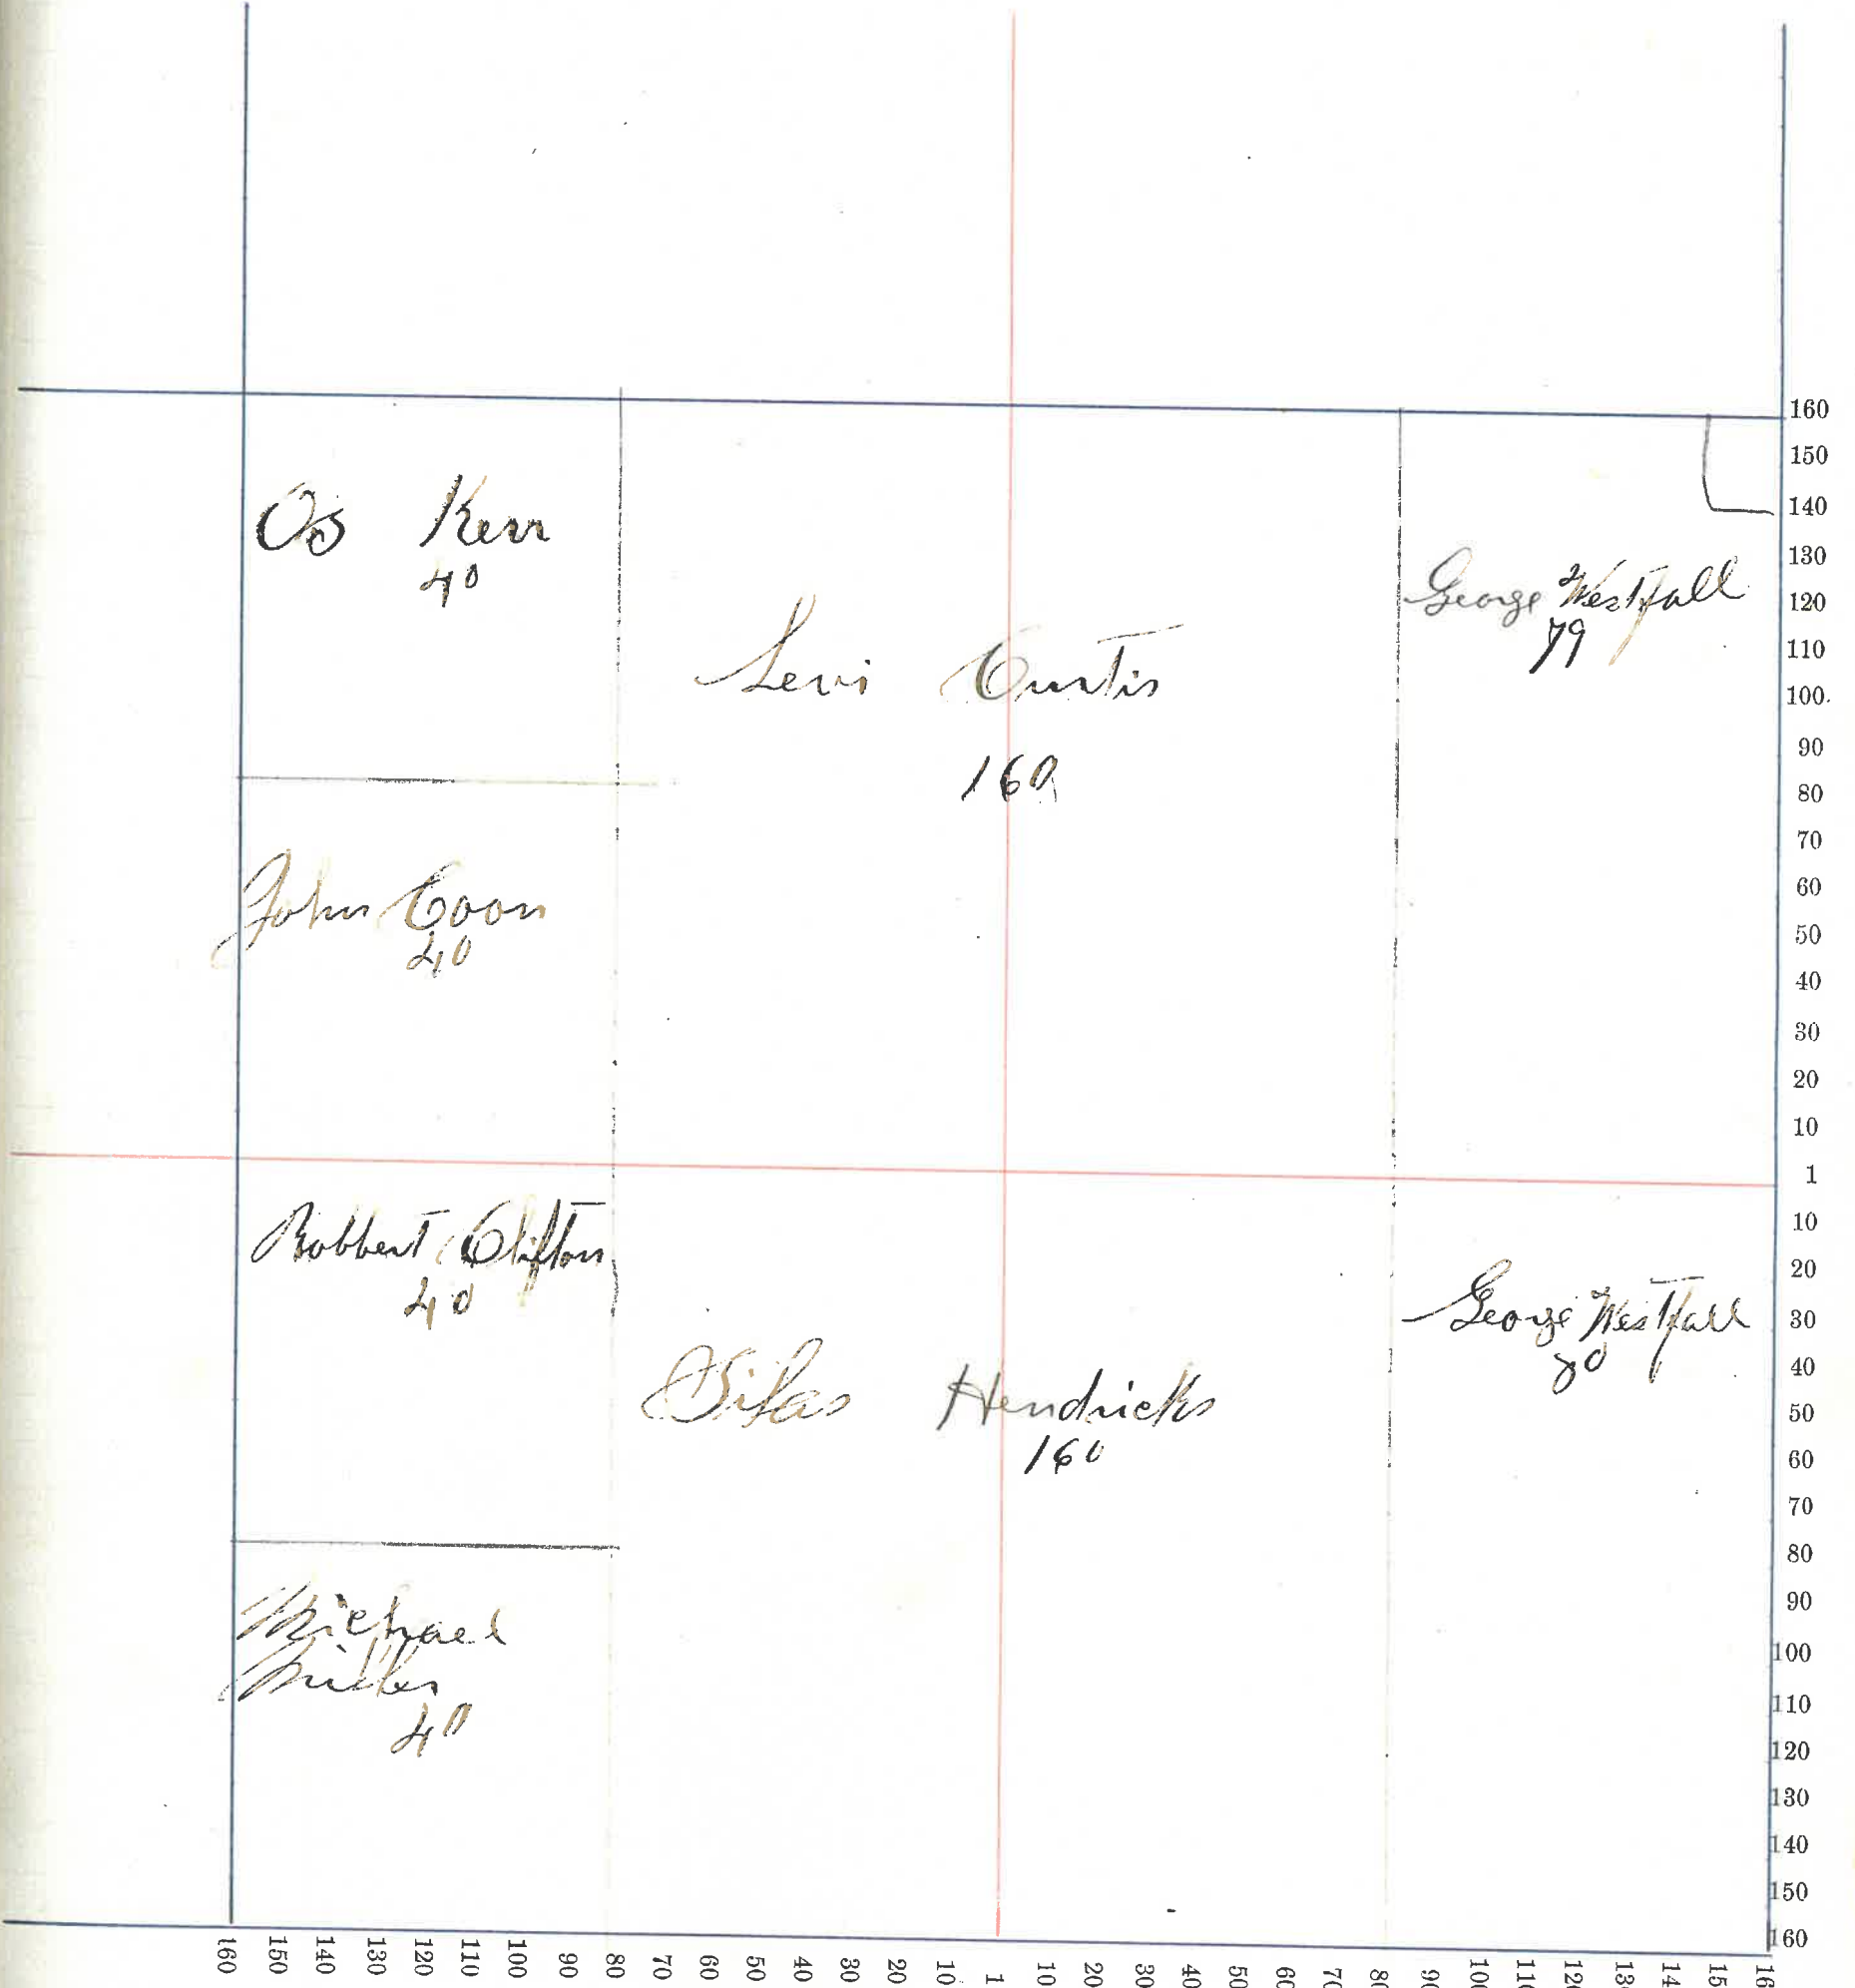 Os Kerr
40
Levi Curtis
160
George Westfall
79
John Coon
40
Robbert Clifton
40
George Westfall
80
Silas Hendricks
160
Michael
Miller
40
160
150
140
130
120
110
100
90
80
70
60
50
40
30
20
10
1
10
20
30
40
50
60
70
80
90
100
110
120
130
140
150
160
160 150 140 130 120 110 100 90 80 70 60 50 40 30 20 10 1 10 20 30 40 50 60 70 80 90 100 110 120 130 14 15 16